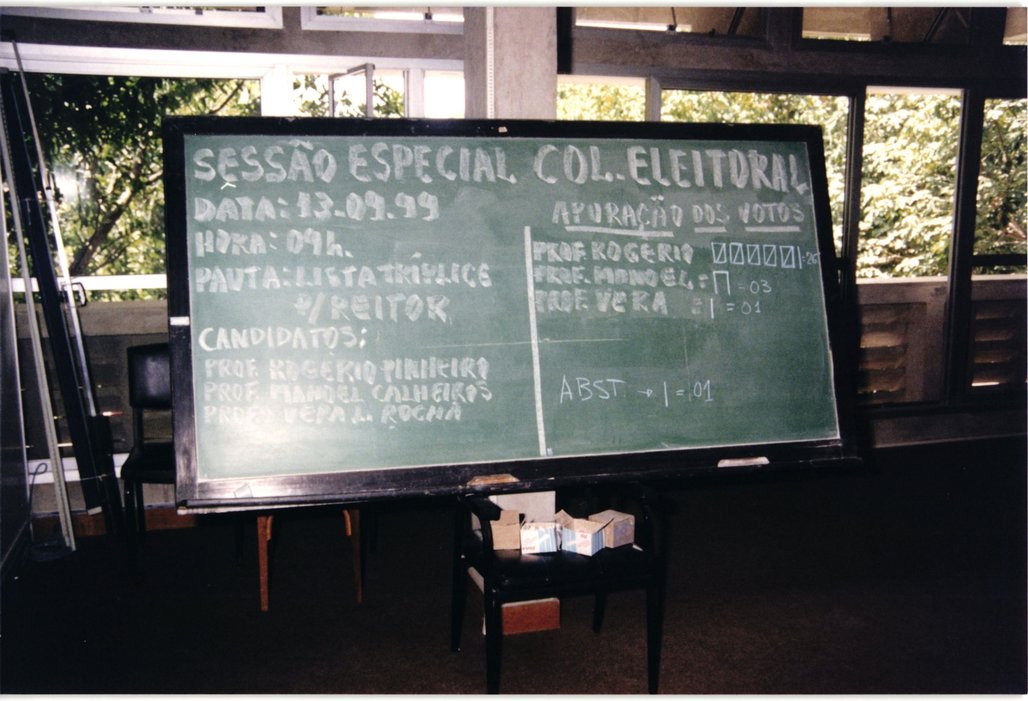 SESSÃO ESPECIAL COL. ELEITORAL
DATA: 13.09.99
HORA: 09h.
PAUTA: LISTA TRÍPLICE
P/ REITOR
CANDIDATOS:
PROF. ROGÉRIO PINHEIRO
PROF. MANOEL CALHEIROS
PROFª VERA L. ROCHA
APURAÇÃO DOS VOTOS
PROF. ROGÉRIO = 26
PROF. MANOEL = = 03
PROF. VERA = | = 01
ABST → | = 01